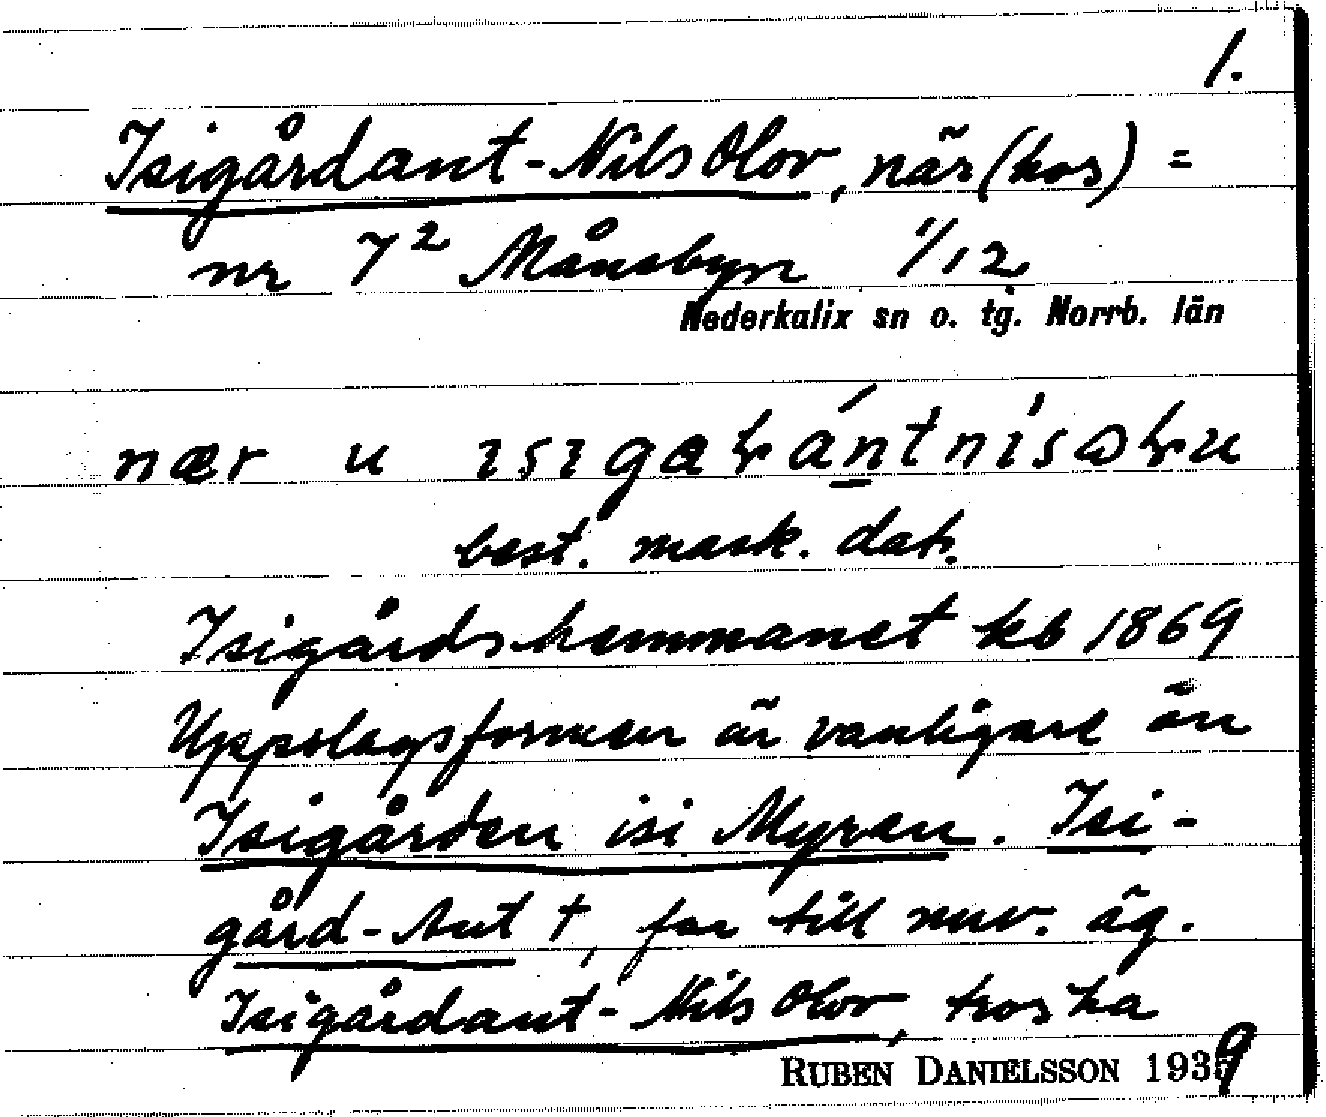 1.
Isigårdant-Nils Olov, när (hos) =
nr 7² Månsbyn 1/12
Nederkalix sn o. tg. Norrb. län
nær u
best. mask. dat.
Isigårdshemmanet kb 1869
Uppslagsformen är vanligare än
Isigården isi Myren. Isi-
gård-Ant †, far till nuv. äg.
Isigårdant-Nils Olov,
RUBEN DANIELSSON 1939